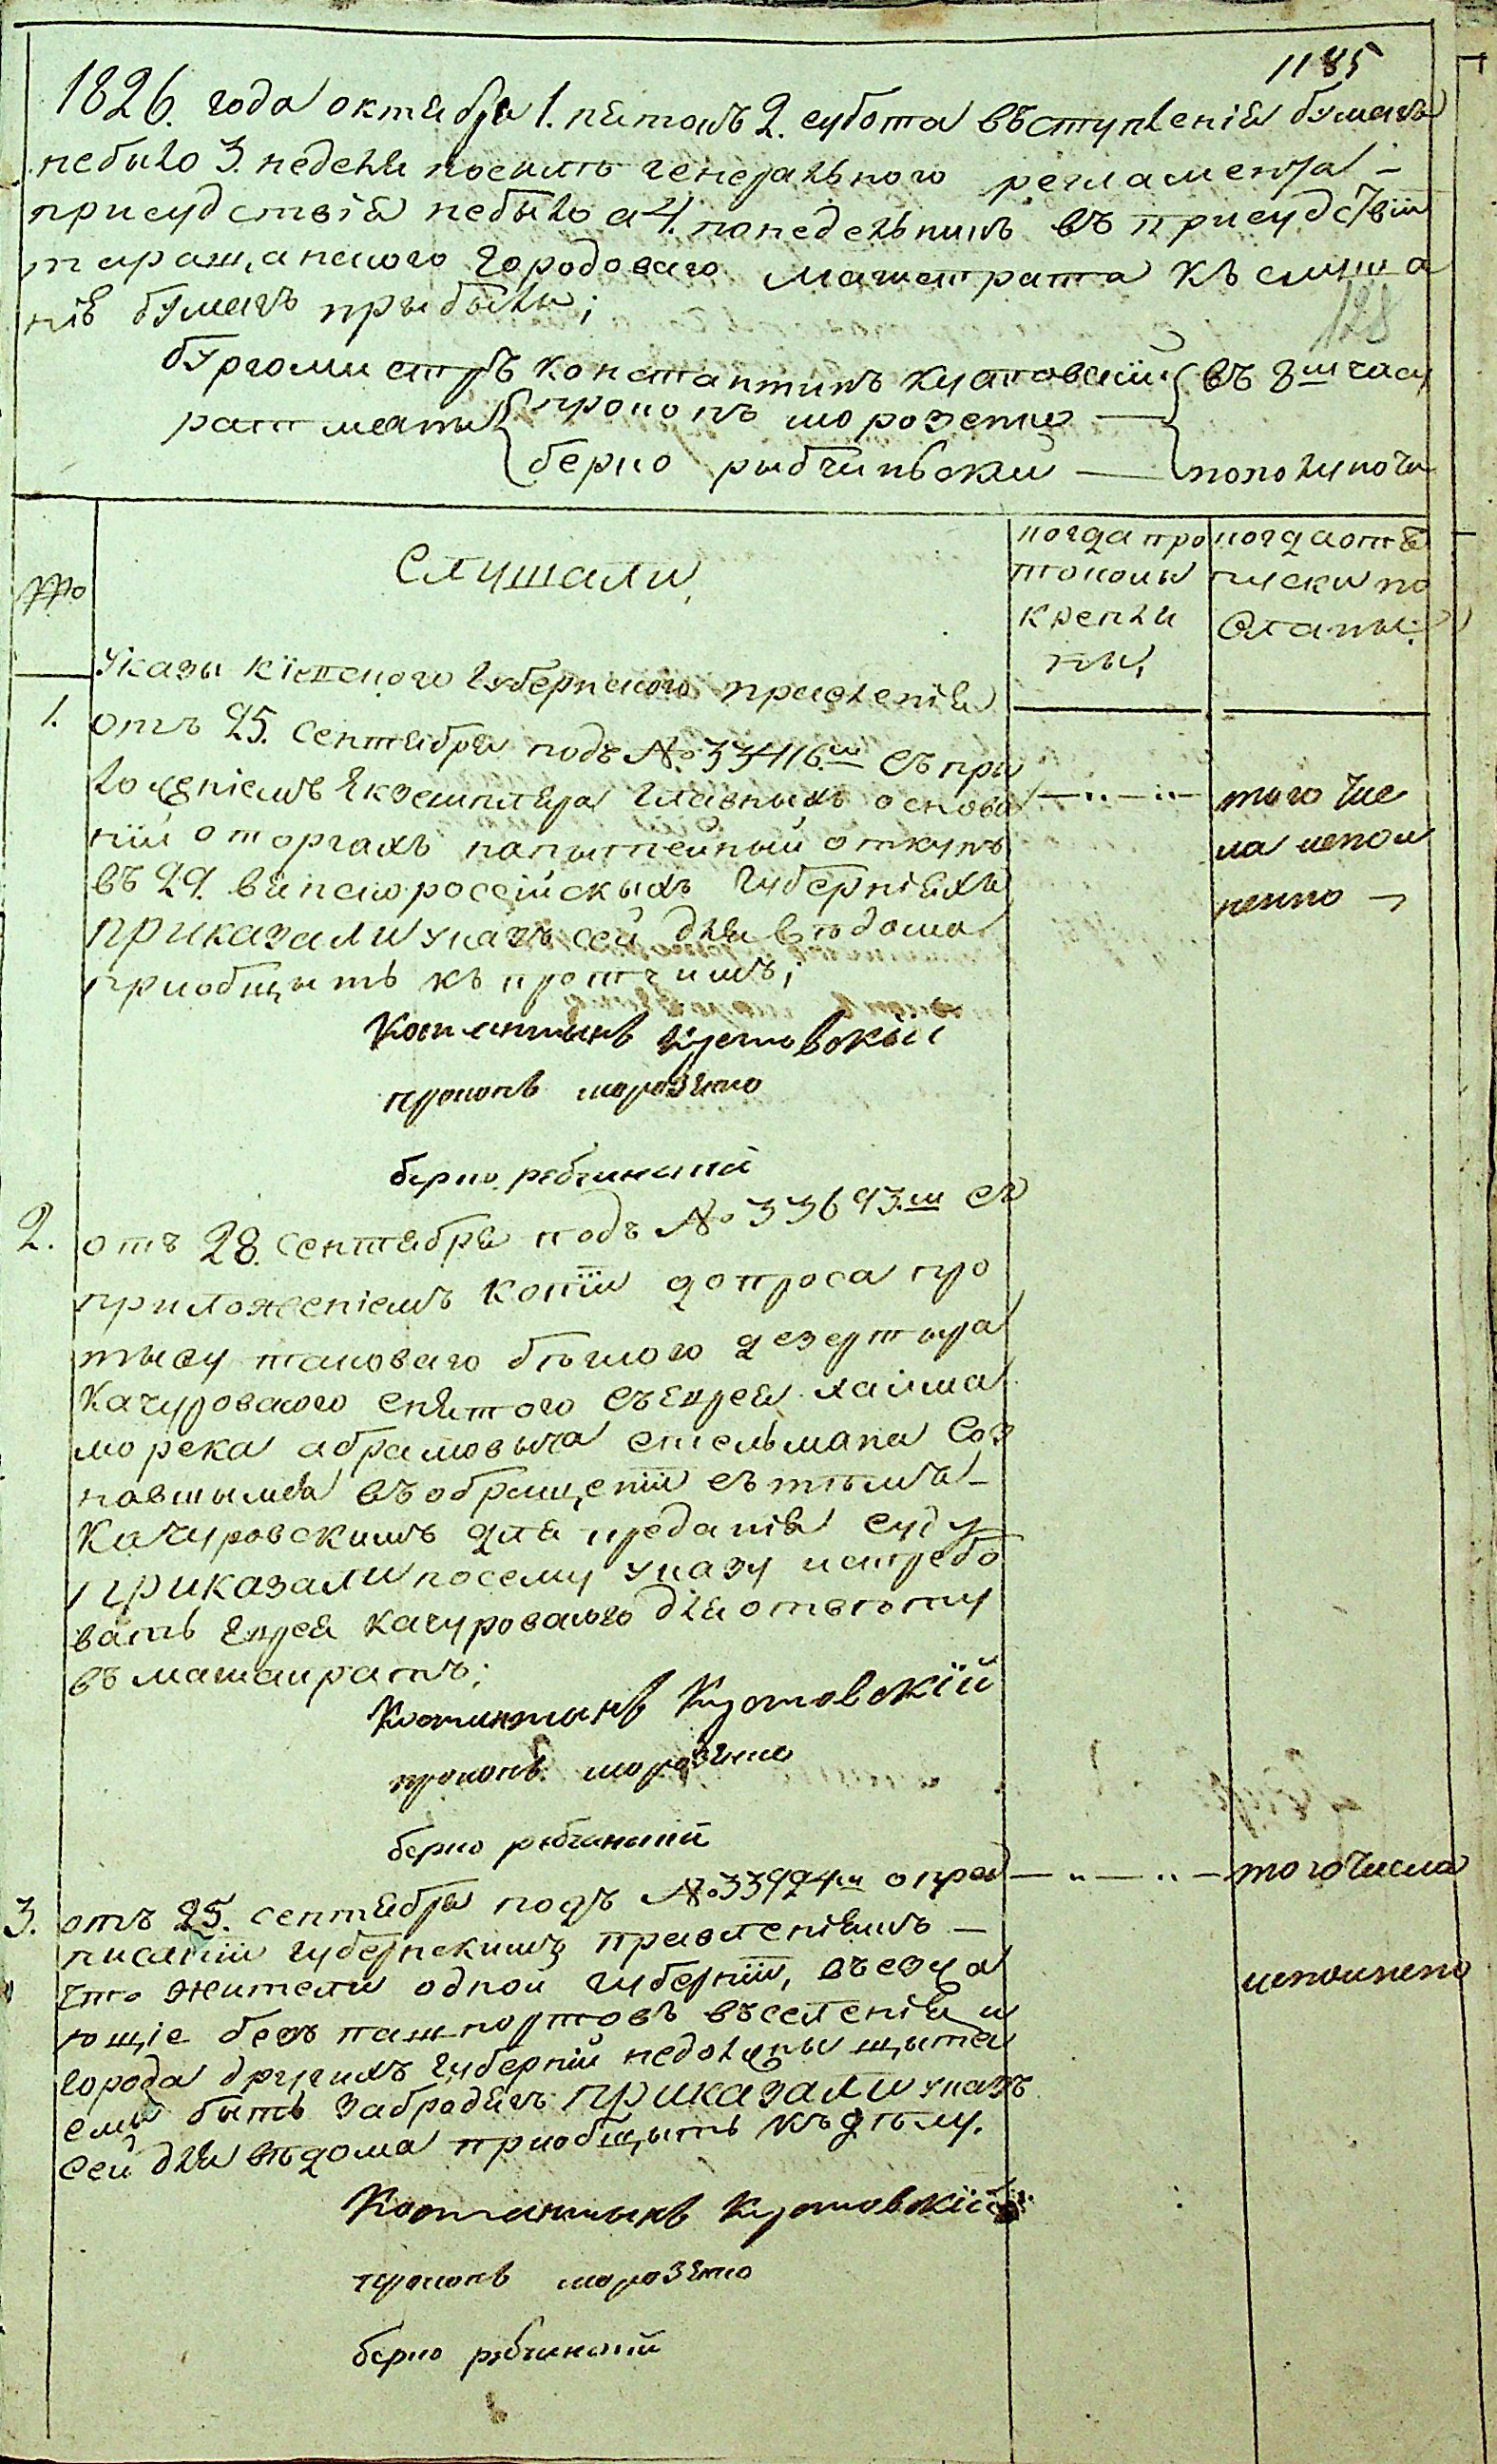 1185
1826. года октября 1. пятокъ 2. субота въступленія бумагъ
небыло 3. неделя посилѣ генерального регламента –
присудствія небыло а 4. понедельникъ въ присудствіи
таращанского городоваго магистрата къ слуша
нію бумагъ прибыли;
128
бургомистръ константинъ кутовскій въ 8ш часу
ратманы прокопъ морозенко —
берко рыбчинский — пополуночи
№ро
Слушали,
когда про
токолы
крепли
ны,
когда отъ
пуски по
сланы:
Указы кіевского Губернского правленія
1. отъ 25. сентября подъ №. 33416.ш съ при
ложеніемъ екземпляра главныхъ основа
ній о торгахъ напитейный откупъ
въ 29. великороссійскыхъ губерніяхъ
приказали указъ сей для вѣдома
приобщыть къ протчимъ;
того чис
ла испол
ненно –
Константынъ Кутовскій
прокопъ морозенко
берко рыбчинский
2. отъ 28. сентября подъ № 33693.ш съ
приложеніемъ копіи допроса про
тыву таковаго беглого дезертыра
Качуровского снятого съ еврея хаима
морека абрамовыча стельмаха соз
навшымся въ обращеніи съ темъ –
Качуровскимъ для преданія суду
приказали посему указу истребо
вать еврея качуровского для ответу
въ магистратъ;
Константынъ Кутовскій
прокопъ морозенко
берко рыбчинский
3. отъ 25. сентября подъ № 33924ш о пред
писаніи губернскимъ правленіямъ –
что жители одной губерніи, въезжа
ющіе безъ пашпортовъ въселенія и
города другихъ губерній недолжны щыта
емы быть забродягъ приказали указъ
сей для вѣдома приобщыть къ делу.
того числа
исполнено
Константынъ Кутовскій
прокопъ морозенко
берко рыбчинский